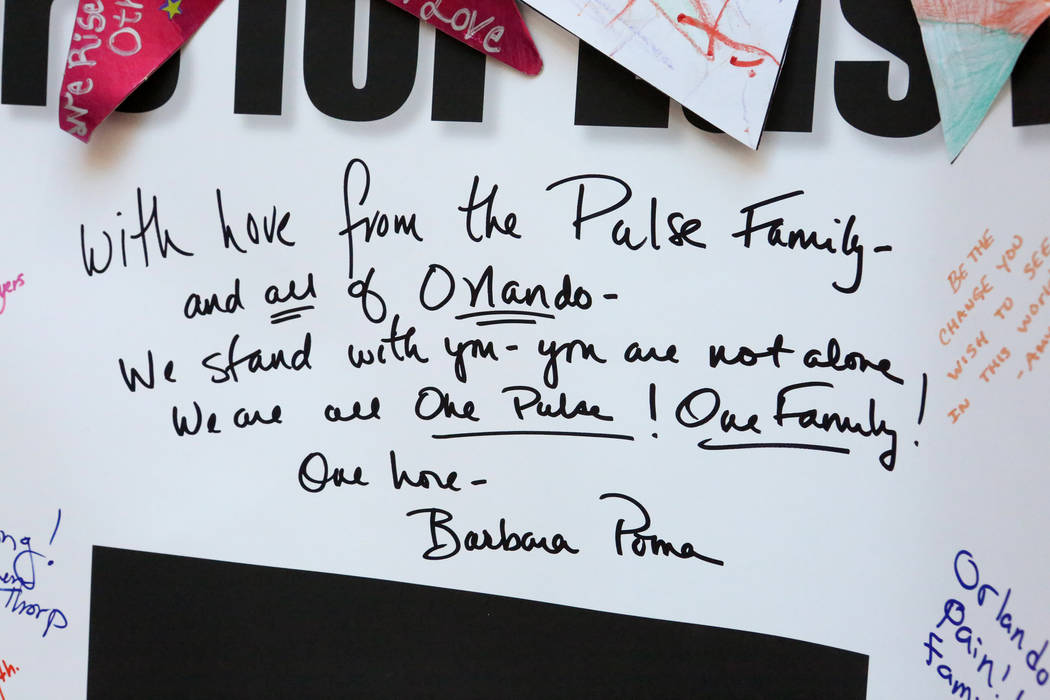 We Rise
Oth
Love
With love from the Pulse Family-
and all of Orlando-
We stand with you- you are not alone
We are all One Pulse! One Family!
One love-
Barbara Poma
BE THE
CHANGE YOU
WISH TO SEE
IN THIS WORL
yers
ng!
Thorp
th.
Orlando
pain!
Fam